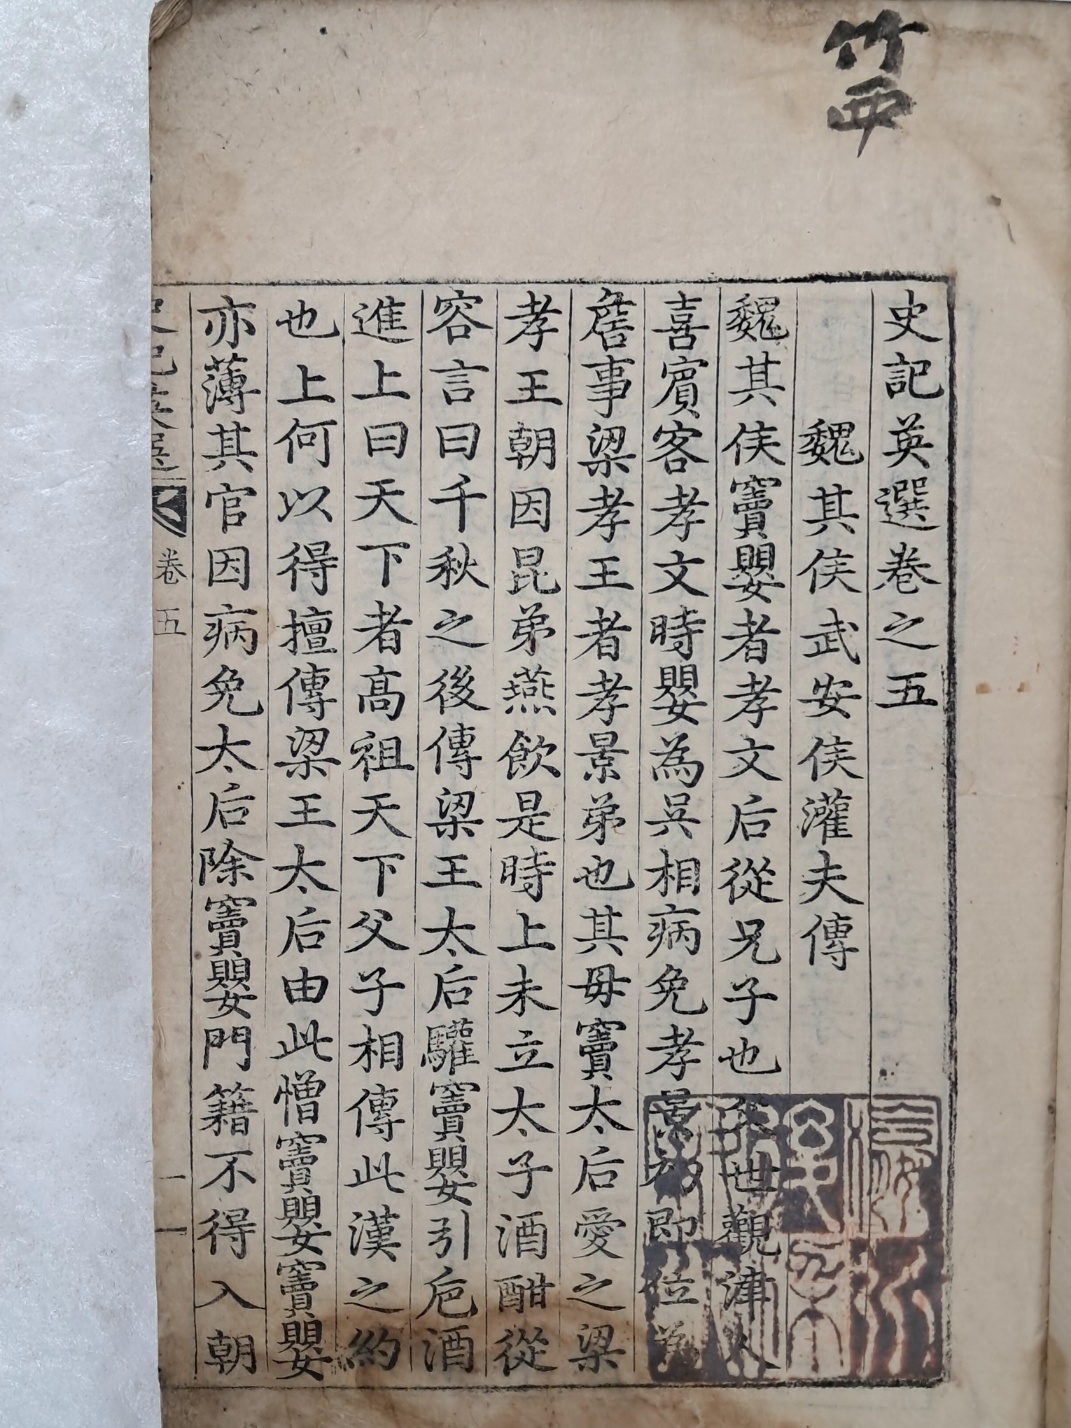 竹西
史記英選卷之五
魏其侯武安侯灌夫傳
魏其侯竇嬰者孝文后從兄子也父世觀津人
喜賓客孝文時嬰為吳相病免孝景初即位為
詹事梁孝王者孝景弟也其母竇太后愛之梁
孝王朝因昆弟燕飲是時上未立太子酒酣從
容言曰千秋之後傳梁王太后驩竇嬰引卮酒
進上曰天下者高祖天下父子相傳此漢之約
也上何以得擅傳梁王太后由此憎竇嬰竇嬰
亦薄其官因病免太后除竇嬰門籍不得入朝
史記英選
卷五
一